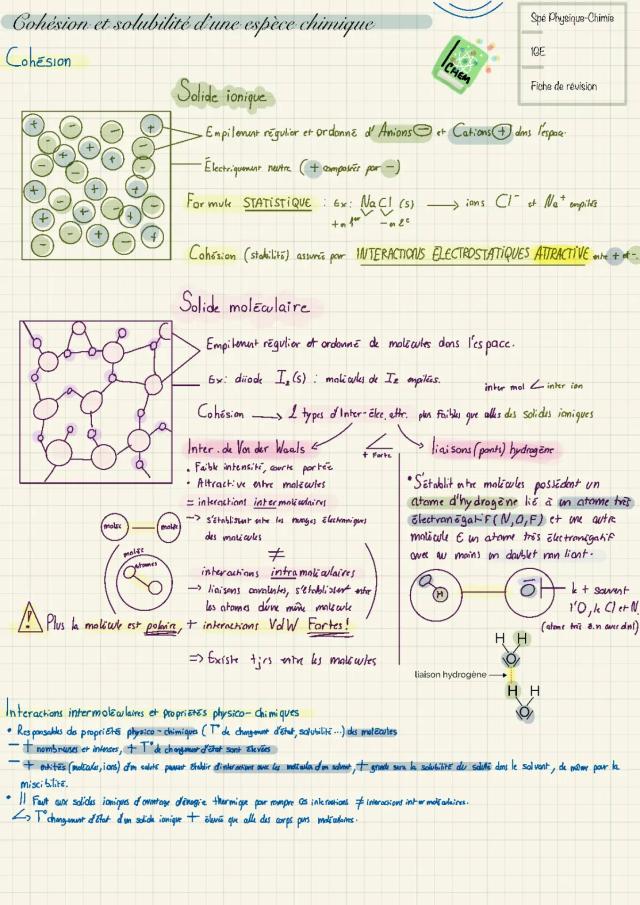 Cohésion et solubilité d'une espèce chimique
Spé Physique-Chimie
1GE
Fiche de révision
CHEM
Cohésion
Solide ionique
Empilement régulier et ordonné d'Anions ⊖ et Cations ⊕ dans l'espace.
Électriquement neutre (+ compensées par -)
Formule STATISTIQUE : Ex: NaCl (s) → ions Cl⁻ et Na⁺ empilés
+ en 1er - en 2e
Cohésion (stabilité) assurée par INTERACTIONS ÉLECTROSTATIQUES ATTRACTIVE entre + et -.
Solide moléculaire
Empilement régulier et ordonné de molécules dans l'espace.
Ex: diiode I₂(s) : molécules de I₂ empilées.
inter mol ∠ inter ion
Cohésion → 2 types d'Inter-élec. attr. plus faibles que celles des solides ioniques
Inter. de Van der Waals
+ Forte
liaisons (ponts) hydrogène
• Faible intensité, courte portée
• Attractive entre molécules
= interactions intermoléculaires
→ s'établissent entre les nuages électroniques
des molécules
≠
interactions intramoléculaires
→ liaisons covalentes, s'établissent entre
les atomes d'une même molécule
moléc
moléc
moléc
atomes
! Plus la molécule est polaire, + interactions VdW Fortes !
⇒ Existe tjrs entre les molécules
• S'établit entre molécules possédant un
atome d'hydrogène lié à un atome très
électronégatif (N,O,F) et une autre
molécule E un atome très électronégatif
avec au moins un doublet non liant.
H
O
le + souvent
l'O, le Cl et N,
(atome très é.n avec dnl)
H H
O
liaison hydrogène
H H
O
Interactions intermoléculaires et propriétés physico-chimiques
• Responsables des propriétés physico-chimiques (T° de changement d'état, solubilité...) des molécules
- + nombreuses et intenses, + T° de changement d'état sont élevées
- + entités (molécules, ions) d'un soluté peuvent établir d'interactions avec les molécules d'un solvant, + grande sera la solubilité du soluté dans le solvant, de même pour la
miscibilité.
• Il faut aux solides ioniques d'avantage d'énergie thermique pour rompre ces interactions ≠ interactions intermoléculaires.
↳ T° changement d'état d'un solide ionique + élevée que celle des corps purs moléculaires.